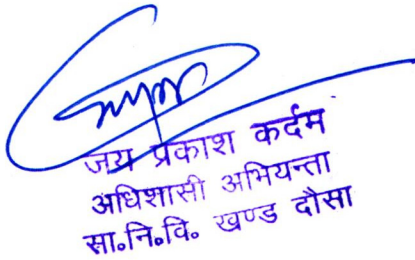 जय प्रकाश कर्दम
अधिशासी अभियन्ता
सा०नि०वि० खण्ड दौसा